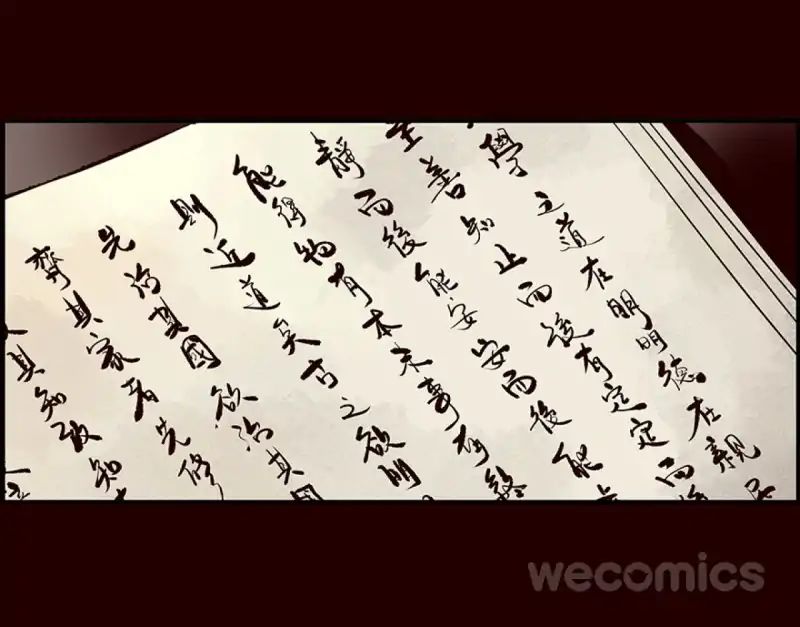 學之道在明明德在親民
至善知止而後有定定而後
靜而後能安安而後能
能得物有本末事有終
則近道矣古之欲明
先治其國欲治其國
齊其家者先修
其知致知
wecomics